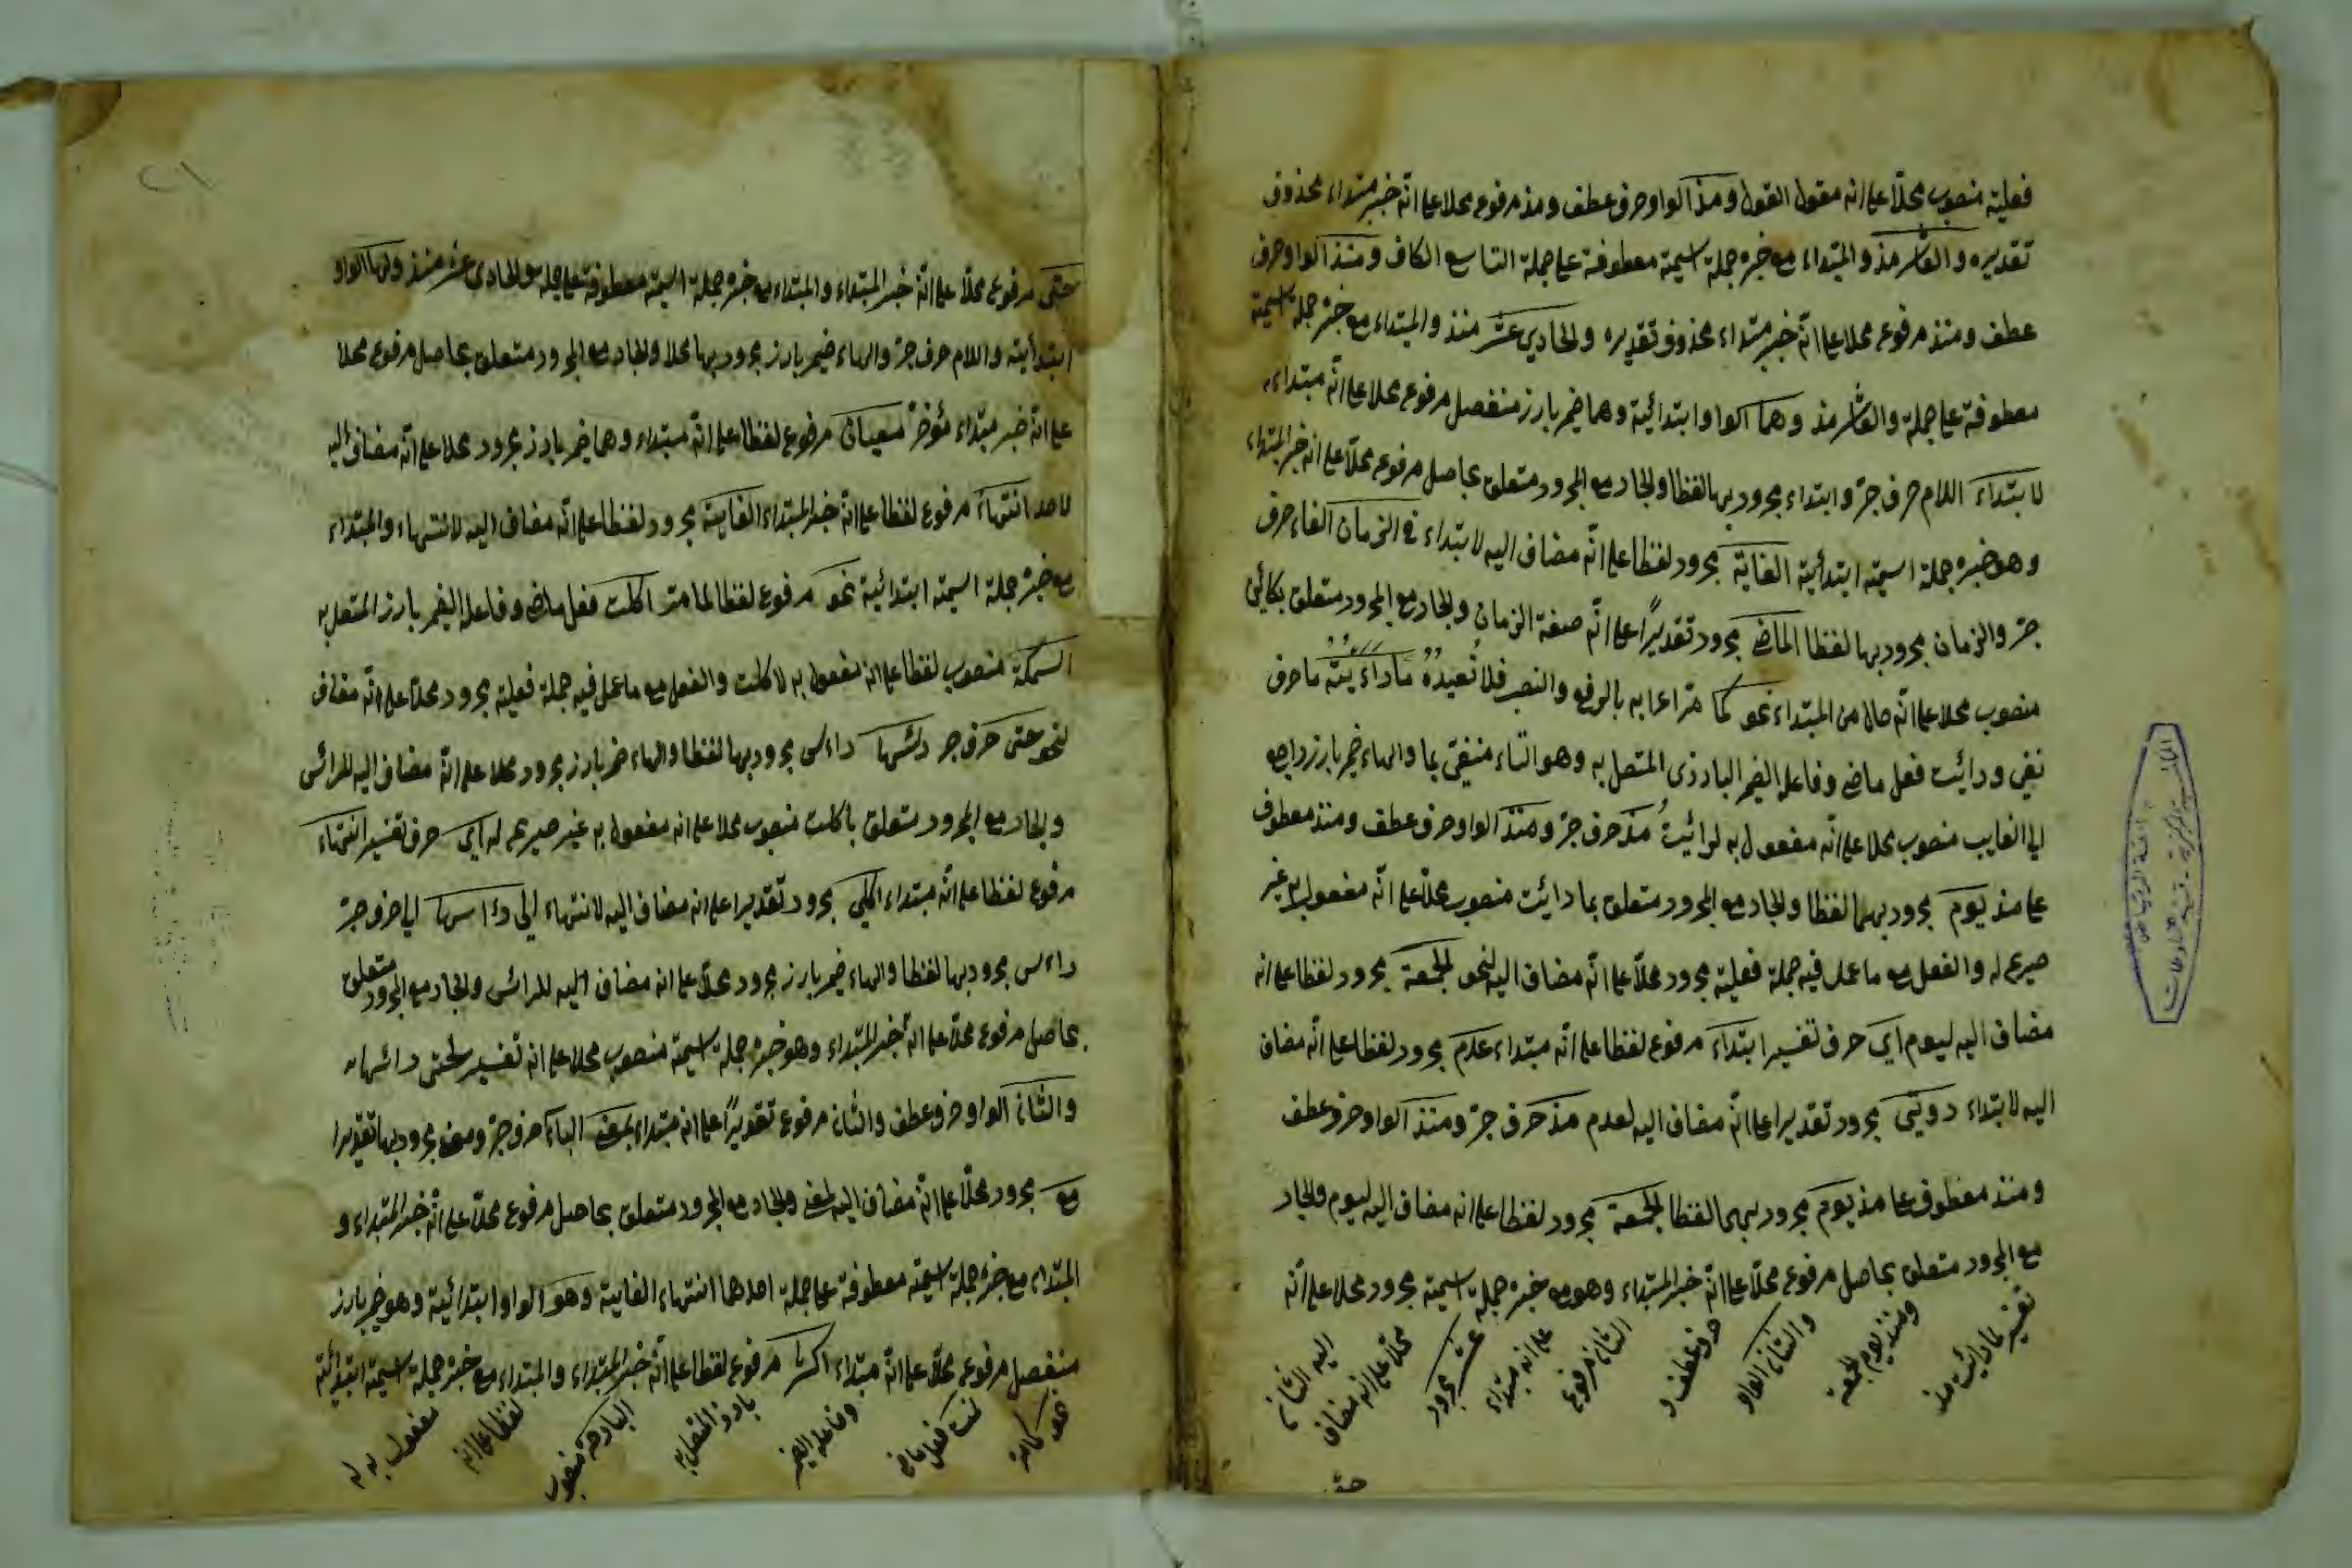 فعلية منصوب محلا على انه مقول القول ومذ الواو حرف عطف ومذ مرفوع محلا على انه خبر مبتداء محذوف
تقديره والعاشر مذ والمبتداء مع خبره جملة اسمية معطوفة على جملة التاسع الكاف ومنذ الواو حرف
عطف ومنذ مرفوع محلا على انه خبر مبتداء محذوف تقديره والحادي عشر منذ والمبتداء مع خبره جملة اسمية
معطوفة على جملة والعاشر مذ وهما الواو ابتدائية وهما ضمير بارز منفصل مرفوع محلا على انه مبتداء
لابتداء اللام حرف جر وابتداء مجرور بها لفظا والجار مع المجرور متعلق بحاصل مرفوع محلا على انه خبر المبتداء
وهو خبره جملة اسمية ابتدائية الغاية مجرور لفظا على انه مضاف اليه لابتداء في الزمان الفاء حرف
جر والزمان مجرور بها لفظا الماضي مجرور تقديرًا على انه صفة الزمان والجار مع المجرور متعلق بكائن
منصوب محلا على انه حال من المبتداء نحو كما مر اعرابه بالرفع والنصب فلا نعيده ما رائيته ما حرف
نفي ورائيت فعل ماضي وفاعله الضمير البارز المتصل به وهو التاء منفي بما والهاء ضمير بارز راجع
الى الغايب منصوب محلا على انه مفعول به لرائيت مذ حرف جر ومنذ الواو حرف عطف ومنذ معطوف
على مذ يوم مجرور بهما لفظا والجار مع المجرور متعلق بما رائيت منصوب محلا على انه مفعول به غير
صريح له والفعل مع ما عمل فيه جملة فعلية مجرور محلا على انه مضاف اليه لنحو الجمعة مجرور لفظا على انه
مضاف اليه ليوم اي حرف تفسير ابتداء مرفوع لفظا على انه مبتداء عدم مجرور لفظا على انه مضاف
اليه لابتداء رويتي مجرور تقديرا على انه مضاف اليه لعدم مذ حرف جر ومنذ الواو حرف عطف
ومنذ معطوف على مذ يوم مجرور بهما لفظا الجمعة مجرور لفظا على انه مضاف اليه ليوم والجار
مع المجرور متعلق بحاصل مرفوع محلا على انه خبر المبتداء وهو مع خبره جملة اسمية مجرور محلا على انه
تفسير لما رائيت مذ
ومنذ يوم الجمعة
والثاني الواو
حرف عطف و
الثاني مرفوع
على انه مبتداء
عشر مجرور
محلا على انه مضاف
اليه الثاني
حتى مرفوع محلا على انه خبر المبتداء والمبتداء مع خبره جملة اسمية معطوفة على جملة والحادي عشر منذ ولها الواو
ابتدائية واللام حرف جر والهاء ضمير بارز مجرور بها محلا والجار مع المجرور متعلق بحاصل مرفوع محلا
على انه خبر مبتداء مؤخر معنيان مرفوع لفظا على انه مبتداء وهما ضمير بارز مجرور محلا على انه مضاف اليه
لاحد انتهاء مرفوع لفظا على انه خبر المبتداء الغاية مجرور لفظا على انه مضاف اليه لانتهاء والمبتداء
مع خبره جملة اسمية ابتدائية نحو مرفوع لفظا لما مر اكلت فعل ماضي وفاعله الضمير بارز المتصل به
السمكة منصوب لفظا على انه مفعول به لاكلت والفعل مع ما عمل فيه جملة فعلية مجرور محلا على انه مضاف
لنحو حتى حرف جر رئسها راس مجرور بها لفظا والهاء ضمير بارز مجرور محلا على انه مضاف اليه للرائس
والجار مع المجرور متعلق باكلت منصوب محلا على انه مفعول به غير صريح له اي حرف تفسير انتهاء
مرفوع لفظا على انه مبتداء اكلي مجرور تقديرا على انه مضاف اليه لانتهاء الى رأسها الى حرف جر
راس مجرور بها لفظا والهاء ضمير بارز مجرور محلا على انه مضاف اليه للرائس والجار مع المجرور متعلق
بحاصل مرفوع محلا على انه خبر المبتداء وهو خبره جملة اسمية منصوب محلا على انه تفسير لحتى رائسها
والثاني الواو حرف عطف والثاني مرفوع تقديرًا على انه مبتداء بمعنى الباء حرف جر ومعنى مجرور بها تقديرا
مع مجرور محلا على انه مضاف اليه لمعنى والجار مع المجرور متعلق بحاصل مرفوع محلا على انه خبر المبتداء و
المبتداء مع خبره جملة اسمية معطوفة على جملة احدهما انتهاء الغاية وهو الواو ابتدائية وهو ضمير بارز
منفصل مرفوع محلا على انه مبتداء اكثر مرفوع لفظا على انه خبر المبتداء والمبتداء مع خبره جملة اسمية ابتدائية
نحو كما مر
نمت فعل ماضي
وفاعله الضمير
بارز المتصل به
البارحة منصوب
لفظا على انه
مفعول به له
٢١